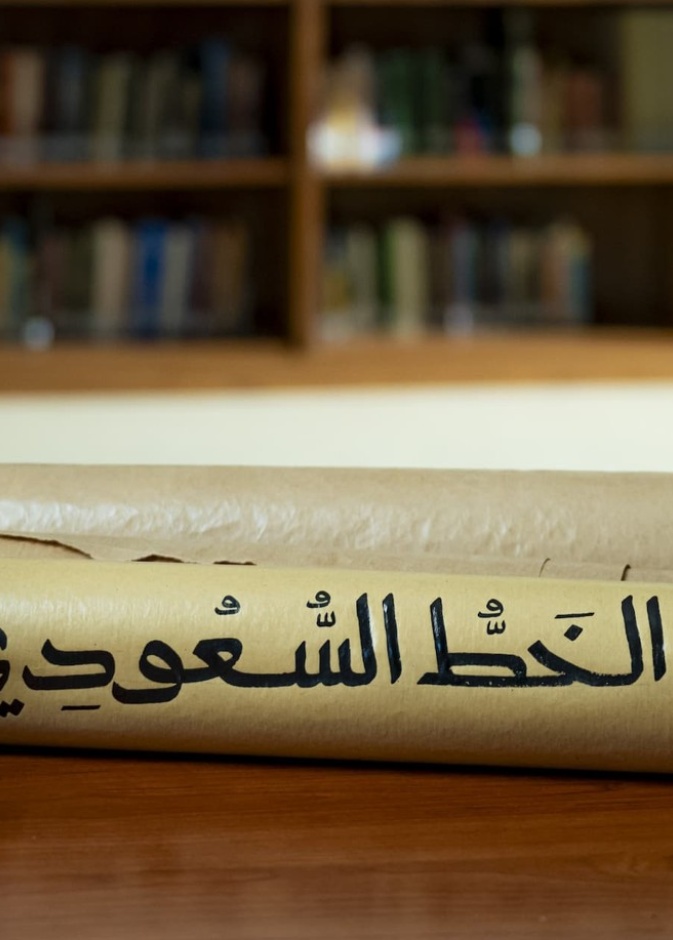 الخَطُّ السُّعُودِي